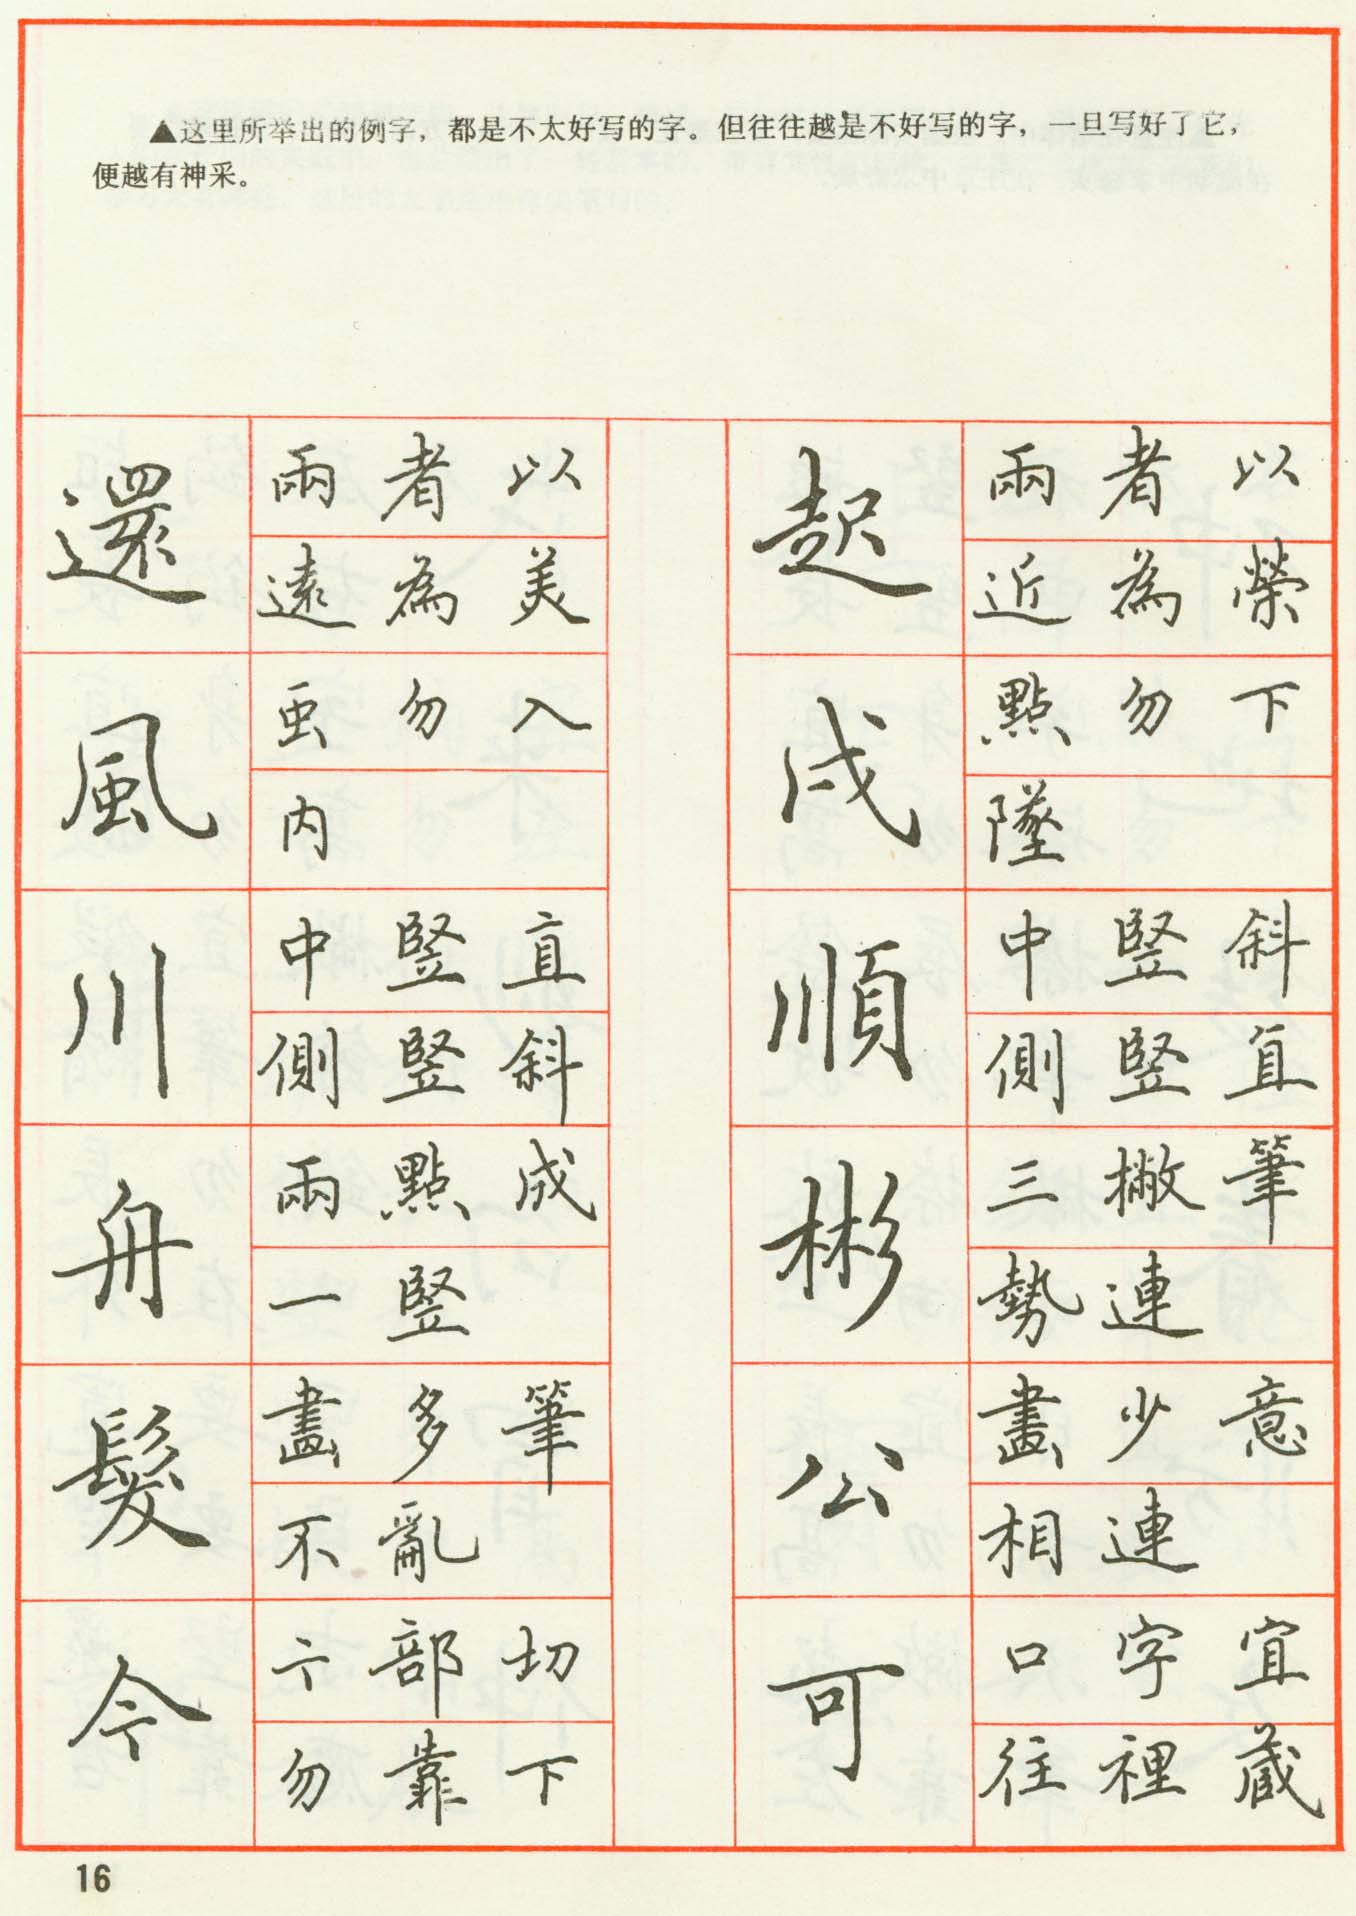 ▲这里所举出的例字，都是不太好写的字。但往往越是不好写的字，一旦写好了它，
便越有神采。
還
兩者以
遠為美
風
虫勿入
内
川
中竪直
側竪斜
舟
兩點成
一竪
髮
畫多筆
不亂
今
亠部切
勿靠下
起
兩者以
近為榮
戍
點勿下
墜
順
中竪斜
側竪直
彬
三撇筆
勢連
公
畫少意
相連
可
口字宜
往裡藏
16